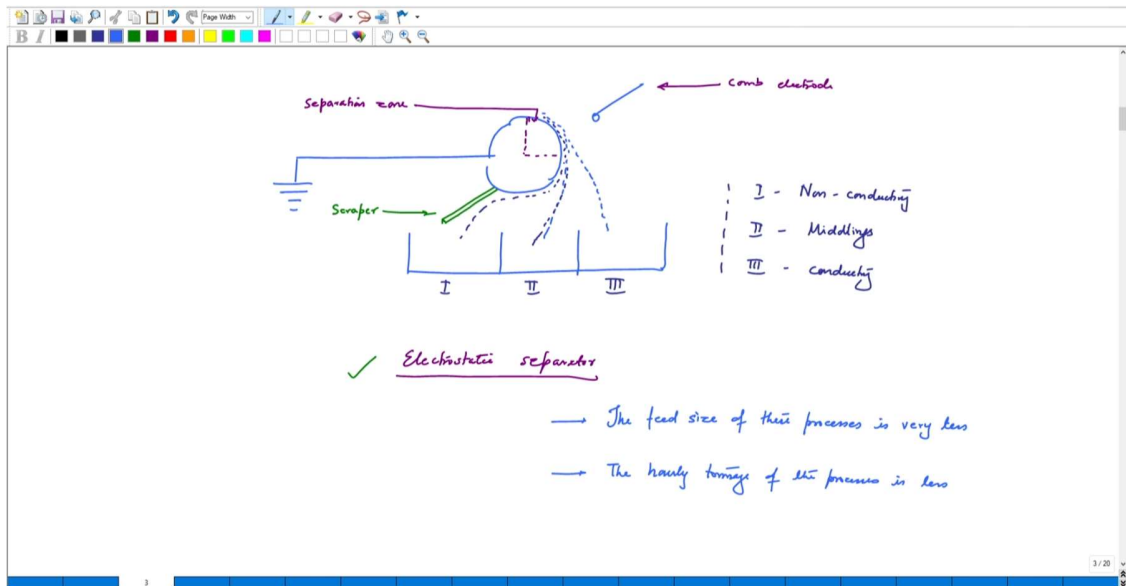 Page Width
B I
comb electrode
Separation zone
Scraper
I - Non-conducting
II - Middlings
III - conducting
I II III
Electrostatic separator
→ The feed size of these processes is very less
→ The hourly tonnage of the processes is less
3 / 20
3